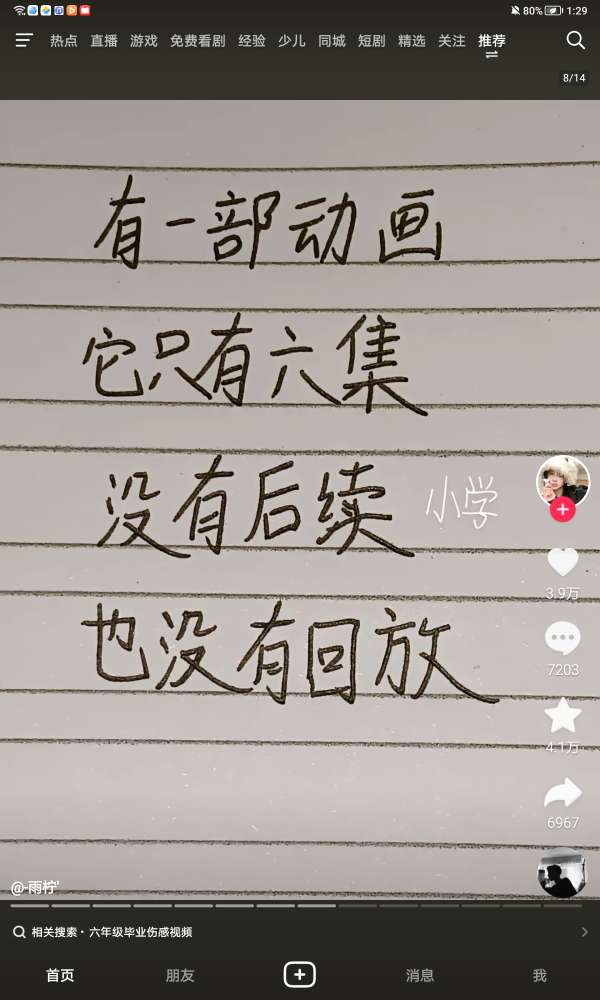 80% 1:29
热点 直播 游戏 免费看剧 经验 少儿 同城 短剧 精选 关注 推荐
8/14
有一部动画
它只有六集
没有后续 小学
也没有回放
3.9万
7203
4.1万
6967
@-雨柠'
相关搜索·六年级毕业伤感视频
首页 朋友 消息 我